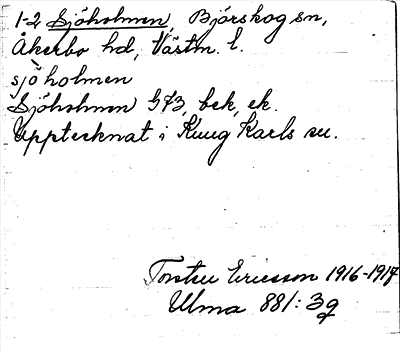 1-2 Sjöholmen, Björskog sn,
Åkerbo hd, Västm. l.
sjöholmen
Sjöholmen GK3, bek, ek.
Upptecknat i Kung Karls sn.
Torsten Ericsson 1916-1917
Ulma 881:39